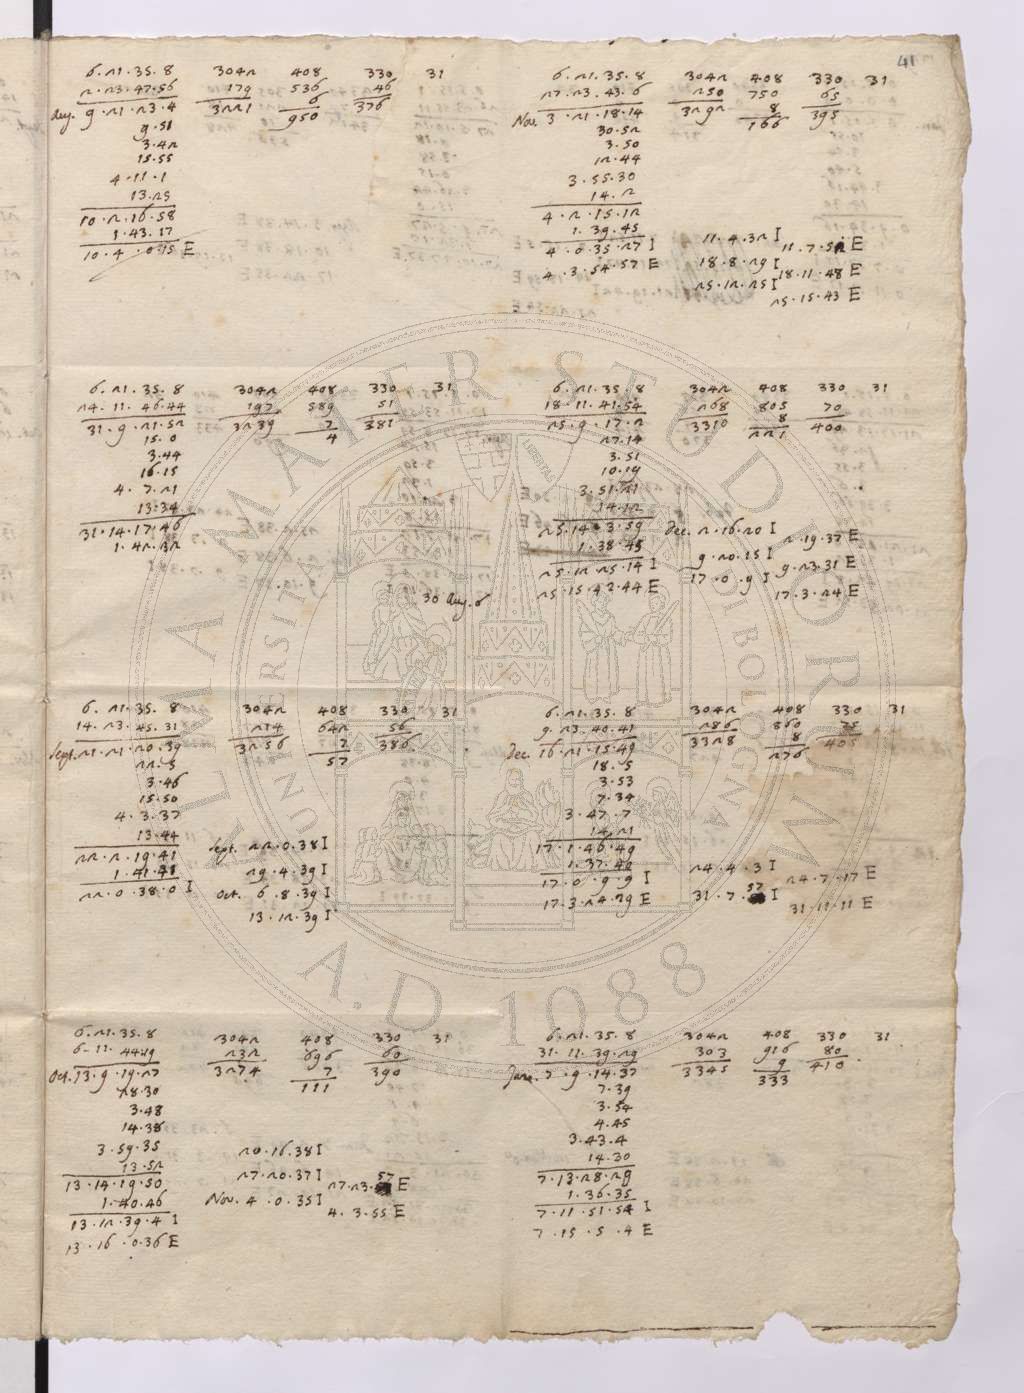 41
6.21.35.8 3042 408 330 31
2.23.47.56 179 536 46
Aug. 9.21.23.4 3221 6 376
9.51 950
3.42
15.55
4.11.1
13.25
10.2.16.58
1.43.17
10.4.0.15 E
6.21.35.8 3042 408 330 31
27.23.43.6 250 750 65
Nov. 3.21.18.14 3292 8 395
30.52 166
3.50
12.44
3.55.30
14.2
4.2.15.12
1.39.45
4.0.35.27 I 11.4.32 I 11.7.52 E
4.3.54.57 E 18.8.29 I 18.11.48 E
25.12.25 I 25.15.43 E
6.21.35.8 3042 408 330 31
24.11.46.44 197 589 51
31.9.21.52 3239 7 381
15.0 4
3.44
16.15
4.7.21
13.34
31.14.17.46
1.42.32
30 Aug. 6
6.21.35.8 3042 408 330 31
18.11.41.54 268 805 70
25.9.17.2 3310 8 400
27.14 221
3.51
10.19
3.51.21
14.12
25.14.3.59 Dec. 2.16.20 I 2.19.37 E
1.38.45 9.20.15 I 9.23.31 E
25.12.25.14 I 17.0.9 I 17.3.24 E
25.15.42.44 E
6.21.35.8 3042 408 330 31
14.23.45.31 214 642 56
Sept. 21.21.20.39 3256 7 386
22.3 57
3.46
15.50
4.3.37
13.44
22.2.19.41 Sept. 22.0.38 I
1.41.41 29.4.39 I
22.0.38.0 I Oct. 6.8.39 I
13.12.39 I
6.21.35.8 3042 408 330 31
9.23.40.41 286 860 75
Dec. 16.21.15.49 3328 8 405
18.5 276
3.53
7.34
3.47.7
14.21
17.1.46.49
1.37.40 24.4.3 I 24.7.17 E
17.0.9.9 I 31.7.57 I 31.11.11 E
17.3.24.29 E
6.21.35.8 3042 408 330 31
6.11.44.19 232 696 60
Oct. 13.9.19.27 3274 7 390
28.30 111
3.48
14.38
3.59.35
13.52 20.16.38 I
13.14.19.50 27.20.37 I 27.23.57 E
1.40.46 Nov. 4.0.35 I 4.3.55 E
13.12.39.4 I
13.16.0.36 E
6.21.35.8 3042 408 330 31
31.11.39.29 303 916 80
Janu. 7.9.14.37 3345 9 410
7.39 333
3.54
4.45
3.43.4
14.30
7.13.28.29
1.36.35
7.11.51.54 I
7.15.5.4 E
ALMA MATER STUDIORUM
UNIVERSITÀ DI BOLOGNA
A.D. 1088